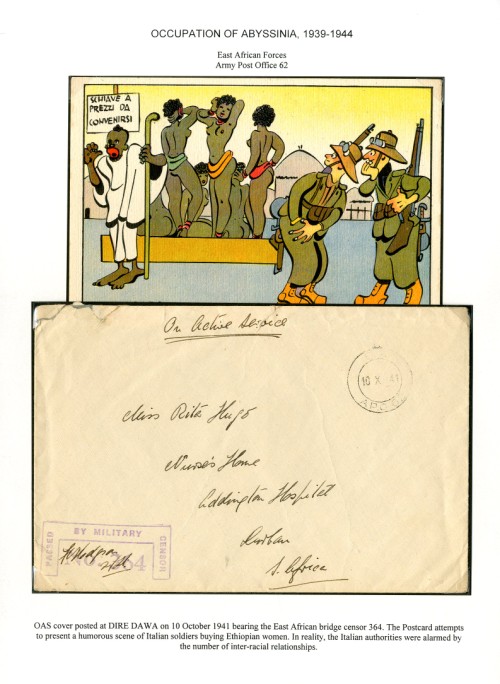 OCCUPATION OF ABYSSINIA, 1939-1944
East African Forces
Army Post Office 62
SCHIAVE A
PREZZI DA
CONVENIRSI
On Active Service
10 X 41
Miss Rita Hugo
Nurse's Home
Addington Hospital
Durban
S. Africa
PASSED
BY MILITARY
CENSOR
OAS cover posted at DIRE DAWA on 10 October 1941 bearing the East African bridge censor 364. The Postcard attempts
to present a humorous scene of Italian soldiers buying Ethiopian women. In reality, the Italian authorities were alarmed by
the number of inter-racial relationships.